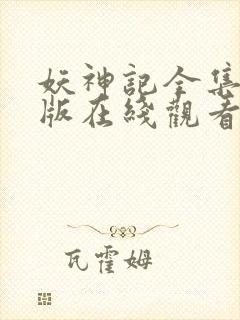 妖神記全集
版在綫觀看
瓦霍姆